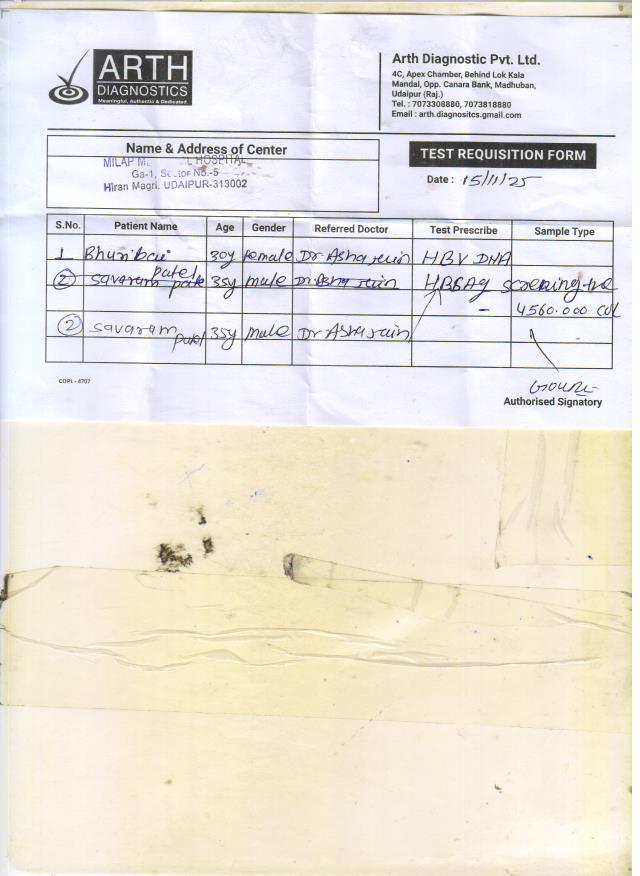 ARTH
DIAGNOSTICS
Meaningful, Authentic & Dedicated.
Arth Diagnostic Pvt. Ltd.
4C, Apex Chamber, Behind Lok Kala
Mandal, Opp. Canara Bank, Madhuban,
Udaipur (Raj.)
Tel. : 7073308880, 7073818880
Email : arth.diagnositcs.gmail.com
Name & Address of Center
MILAP HOSPITAL
Ga-1, Sector No.-5
Hiran Magri, UDAIPUR-313002
TEST REQUISITION FORM
Date : 15/11/25
S.No. Patient Name Age Gender Referred Doctor Test Prescribe Sample Type
1 Bhuribai 30y female Dr Asha Jain HBV DNA
patel
2 Savaram patel 35y male Dr Asha Jain HBSAg screening +ve
4560.000
2 Savaram patel 35y male Dr Asha Jain
COPL - 4707
Authorised Signatory